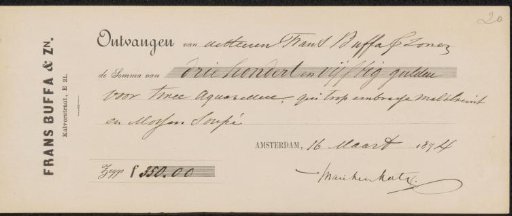 20
FRANS BUFFA & ZN.
Kalverstraat, E 21.
Ontvangen van de Heeren Frans Buffa & Zonen
de Somma van drie hondert en vijftig gulden
voor twee aquarellen, qui trop embrasse mal étreint
en Soupé
AMSTERDAM, 16 Maart 1894
Zegge f 350.00